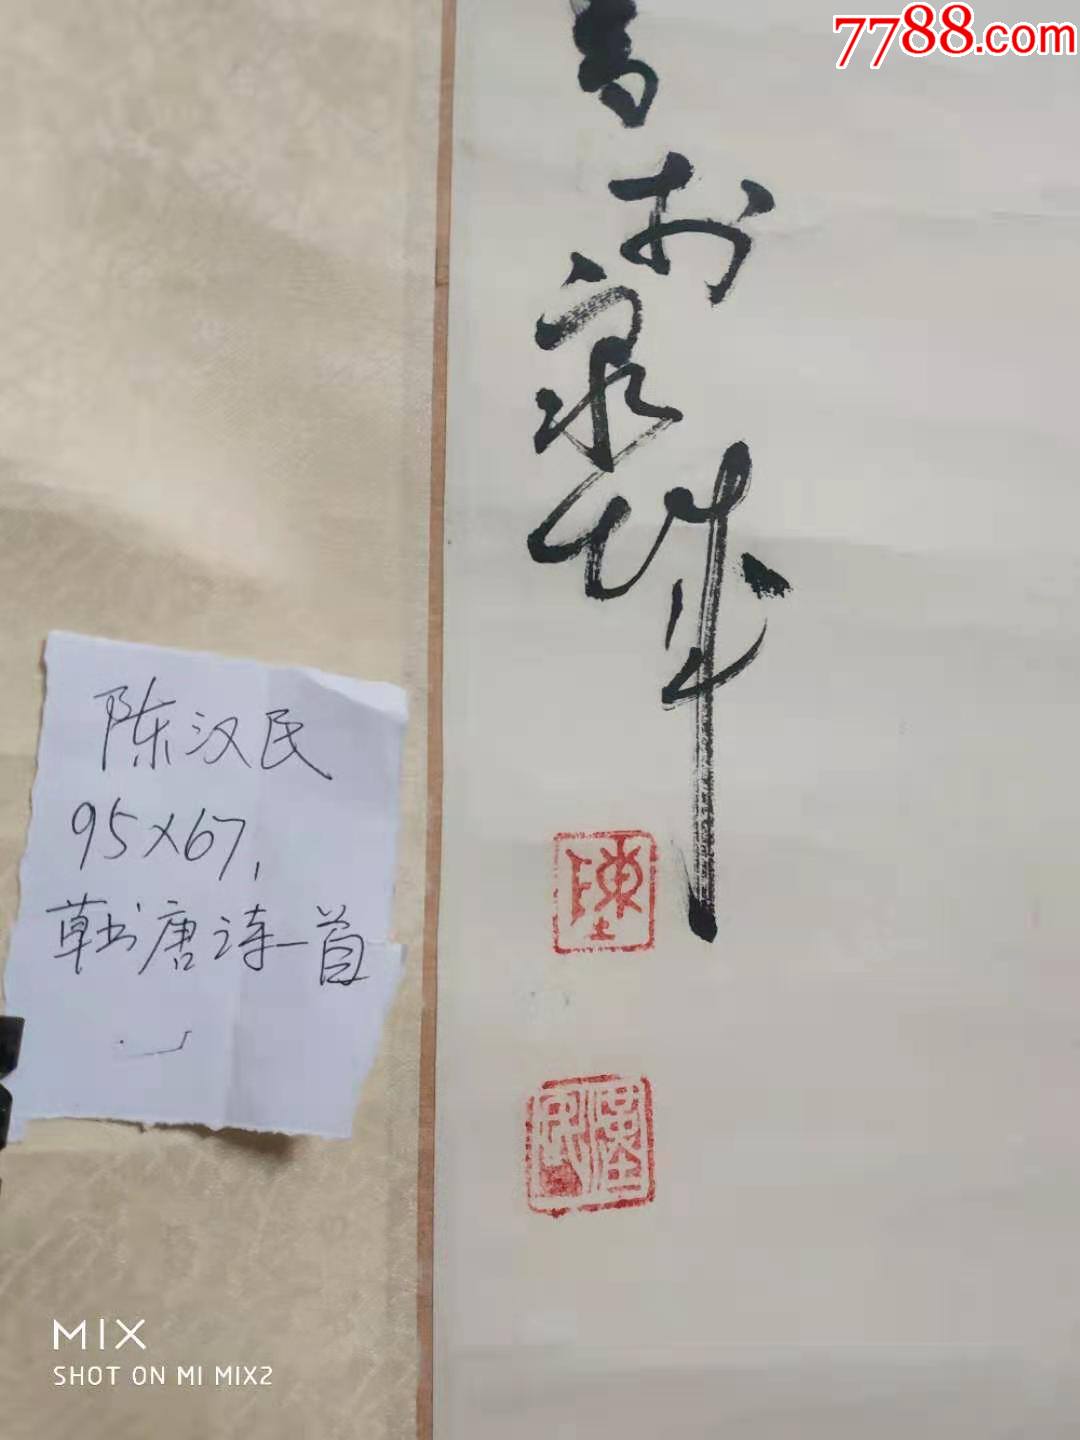 7788.com
書于
泉城
陳
漢民
陈汉民
95×67,
草书唐诗一首
MIX
SHOT ON MI MIX2